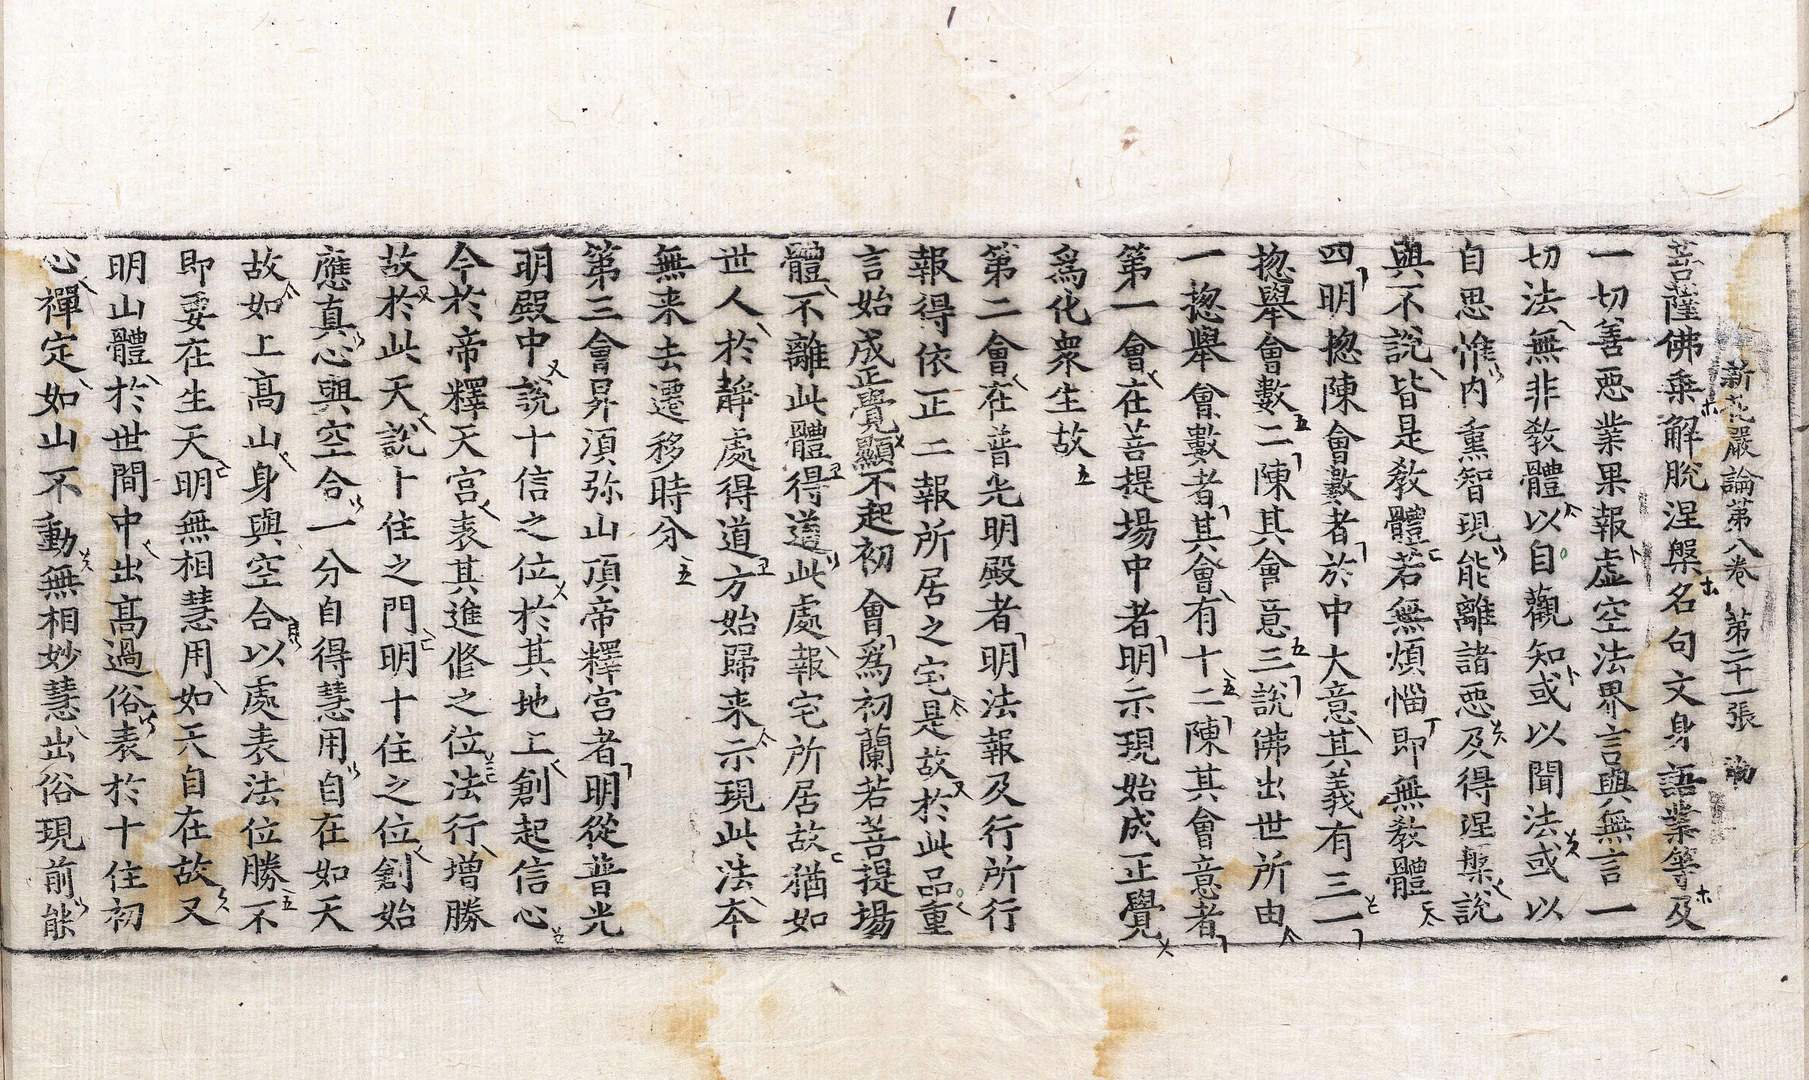 新花嚴論第八卷 第二十一張
菩薩佛乗解脫涅槃名句文身語業等及
一切善惡業果報虛空法界言與無言一
切法無非教體以自觀知或以聞法或以
自思惟內熏智現能離諸惡及得涅槃說
與不說皆是教體若無煩惱即無教體
四明揔陳會數者於中大意其義有三一
揔舉會數二陳其會意三說佛出世所由
一揔舉會數者其會有十二陳其會意者
第一會在菩提場中者明示現始成正覺
爲化衆生故
第二會在普光明殿者明法報及行所行
報得依正二報所居之宅是故於此品重
言始成正覺顯不起初會爲初蘭若菩提場
體不離此體得道此處報宅所居故猶如
世人於靜處得道方始歸来示現此法本
無来去遷移時分
第三會昇湏弥山頂帝釋宮者明從普光
明殿中說十信之位於其地上創起信心
今於帝釋天宮表其進修之位法行增勝
故於此天說十住之門明十住之位創始
應真心與空合一分自得慧用自在如天
故如上高山身與空合以處表法位勝不
即要在生天明無相慧用如天自在故又
明山體於世間中出高過俗表於十住初
心禪定如山不動無相妙慧出俗現前能